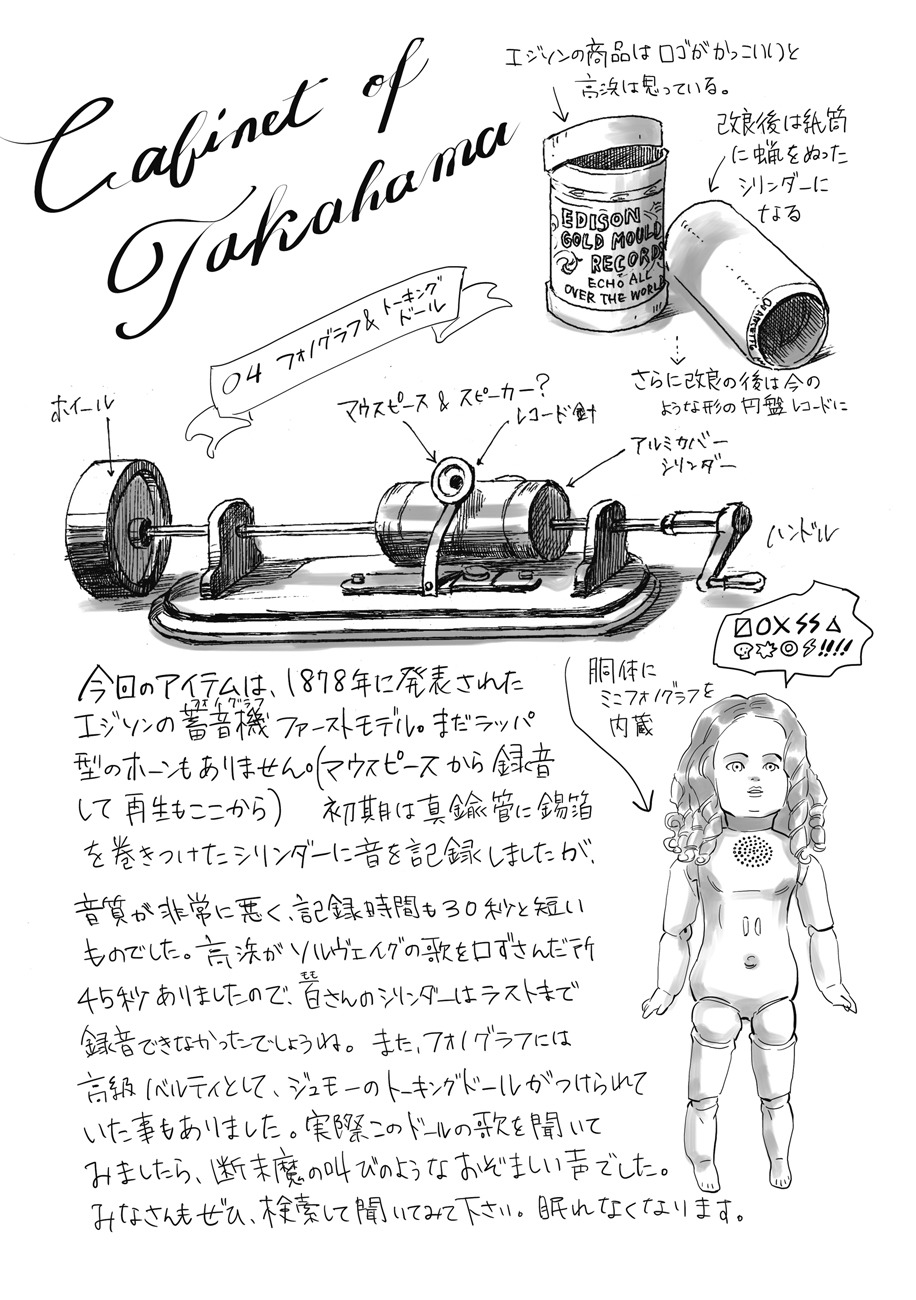 Cabinet of
Takahama
エジソンの商品はロゴがかっこいいと
高浜は思っている。
改良後は紙筒
に蝋をぬった
シリンダーに
なる
EDISON
GOLD MOULD
RECORDS
ECHO ALL
OVER THE WORLD
04 フォノグラフ&トーキング
ドール
さらに改良の後は今の
ような形の円盤レコードに
ホイール
マウスピース & スピーカー?
レコード針
アルミカバー
シリンダー
ハンドル
胴体に
ミニフォノグラフを
内蔵
今回のアイテムは、1878年に発表された
フォノグラフ
エジソンの蓄音機ファーストモデル。まだラッパ
型のホーンもありません。(マウスピースから録音
して再生もここから) 初期は真鍮管に錫箔
を巻きつけたシリンダーに音を記録しましたが、
音質が非常に悪く、記録時間も30秒と短い
ものでした。高浜がソルヴェイグの歌を口ずさんだ所
45秒ありましたので、皆さんのシリンダーはラストまで
モモ
録音できなかったでしょうね。また、フォノグラフには
高級ノベルティとして、ジュモーのトーキングドールがつけられて
いた事もありました。実際このドールの歌を聞いて
みましたら、断末魔の叫びのようなおぞましい声でした。
みなさんもぜひ、検索して聞いてみて下さい。眠れなくなります。